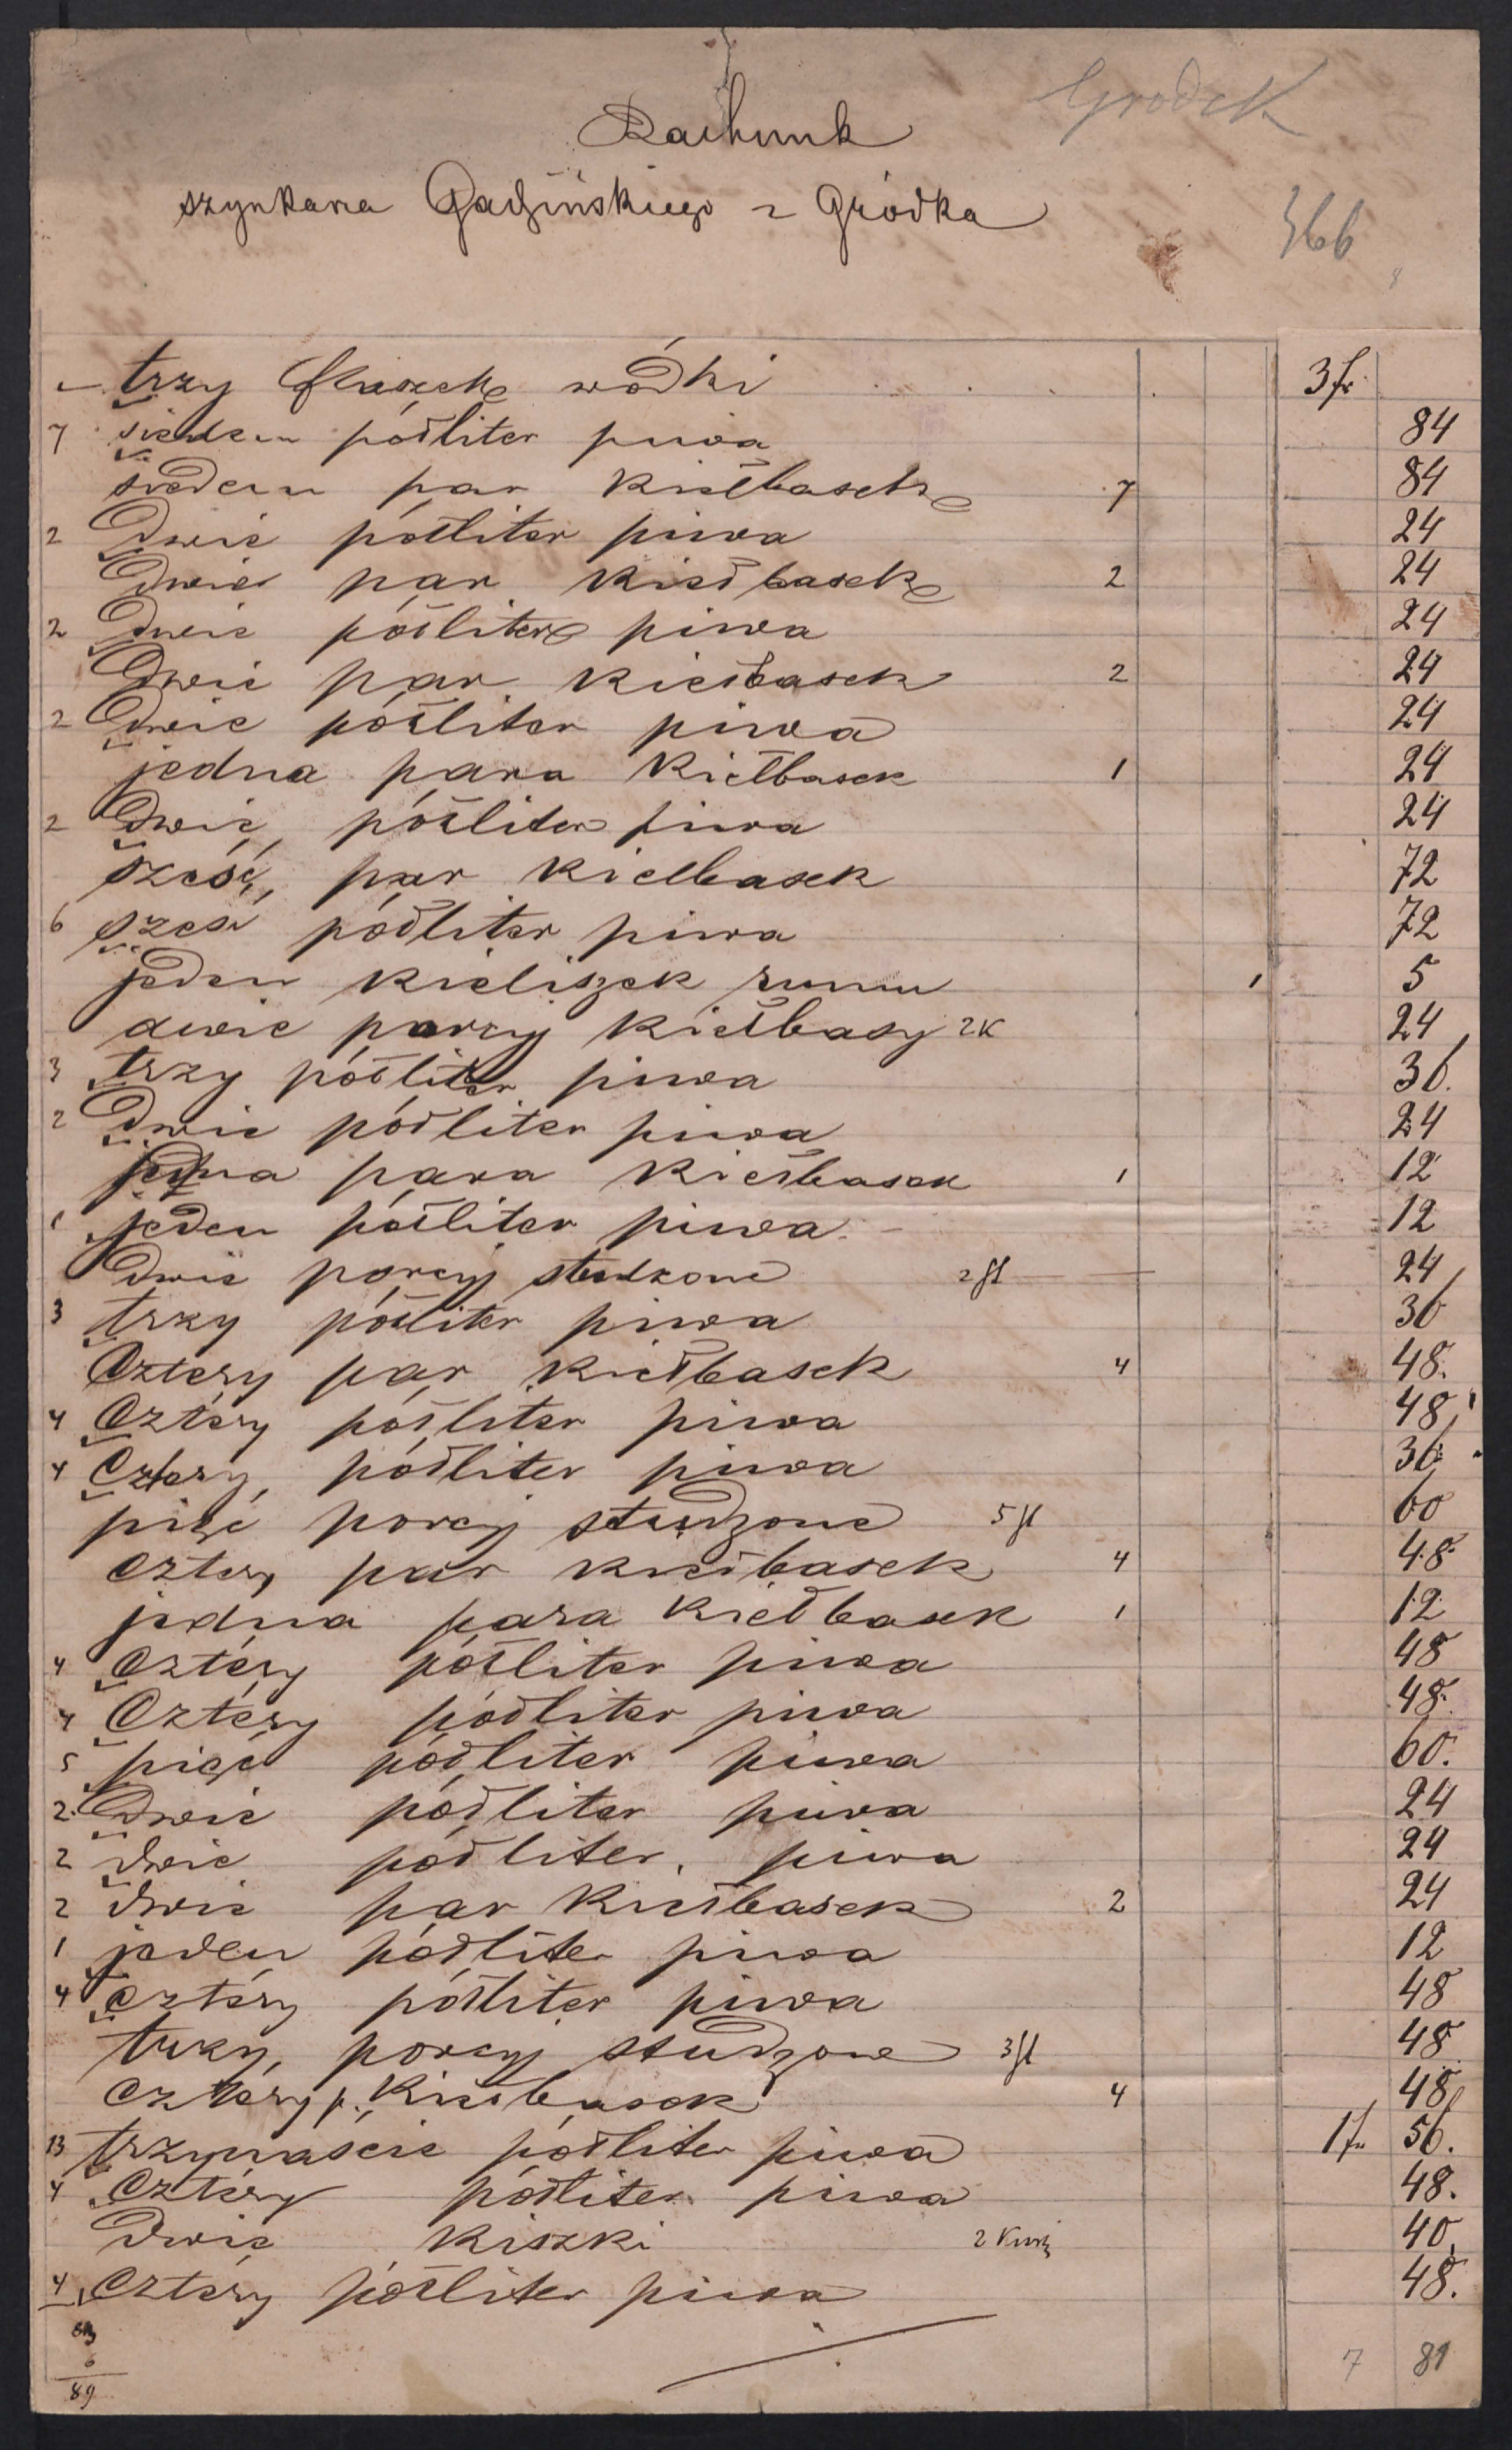 Gródek
Rachunk
szynkarza Gadzińskiego z Gródka
366
trzy flaszek wódki 3 fr
7 siedem półliter piwa 84
siedem par kiełbasek 7 84
2 Dwie półliter piwa 24
Dwie par kiełbasek 2 24
2 Dwie półliter piwa 24
Dwie par kiełbasek 2 24
2 Dwie półliter piwa 24
jedna para kiełbasek 1 24
2 Dwie półliter piwa 24
sześć par kielbasek 72
6 sześć półliter piwa 72
jeden kieliszek rumu 1 5
dwie porcyj kiełbasy 2 K 24
3 trzy półliter piwa 36.
2 Dwie półliter piwa 24
jedna para kiełbasek 1 12
1 jeden półliter piwa 12
Dwie porcyj studzone 2 st 24
3 trzy półliter piwa 36
Cztery par kiełbasek 4 48.
4 Cztery półliter piwa 48
4 Cztery półliter piwa 36
pięć porcyj studzone 5 st 60
cztery par kiełbasek 4 48
jedna para kiełbasek 1 12
4 Cztery półliter piwa 48
4 Cztery półliter piwa 48.
5 pięć półliter piwa 60.
2 Dwie półliter piwa 24
2 dwie półliter piwa 24
2 dwie par kiełbasek 2 24
1 jeden półliter piwa 12
4 cztery półliter piwa 48
trzy porcyj studzone 3 st 48
Cztery p. Kiełbasek 4 48
13 trzynaście półliter piwa 1 fr 56.
4 Cztery półliter piwa 48.
Dwie kiszki 40
4 Cztery półliter piwa 48.
6
89
7 81